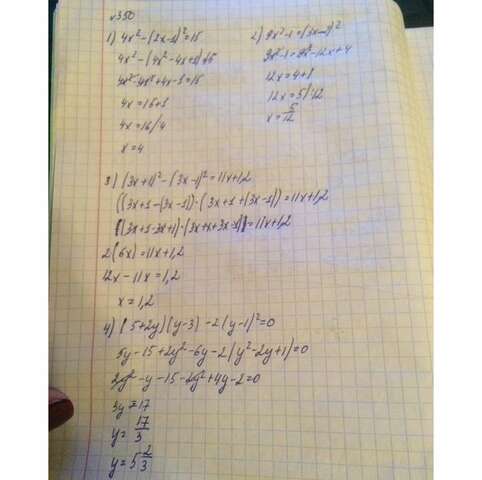 №350
1) 4x²-(2x-1)²=15
4x²-(4x²-4x+1)=15
4x²-4x²+4x-1=15
4x=15+1
4x=16/4
x=4
2) 9x²-1=(3x-2)²
9x²-1=9x²-12x+4
12x=4+1
12x=5/:12
x=5/12
3) (3x+1)²-(3x-1)²=11x+1,2
((3x+1-(3x-1))·(3x+1+(3x-1))=11x+1,2
(3x+1-3x+1)·(3x+1+3x-1)=11x+1,2
2(6x)=11x+1,2
12x-11x=1,2
x=1,2
4) (5+2y)(y-3)-2(y-1)²=0
5y-15+2y²-6y-2(y²-2y+1)=0
2y²-y-15-2y²+4y-2=0
3y=17
y=17/3
y=5 2/3